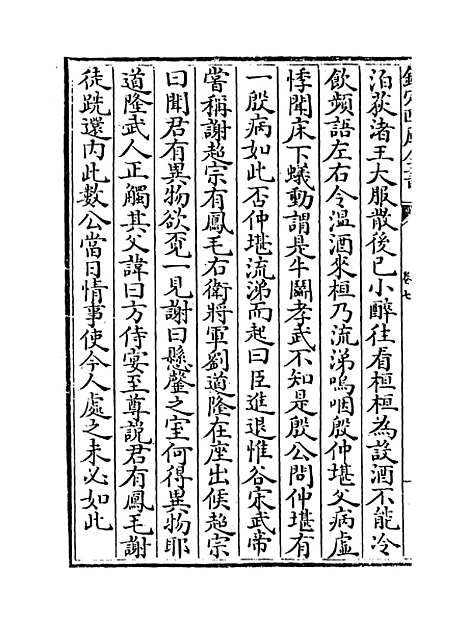 泊荻渚王大服散後已小醉往看桓桓為設酒不能冷
飲頻語左右令温酒來桓乃流涕嗚咽殷仲堪父病虚
悸聞床下蟻動謂是牛鬬孝武不知是殷公問仲堪有
一殷病如此否仲堪流涕而起曰臣進退惟谷宋武帝
嘗稱謝超宗有鳳毛右衛將軍劉道隆在座出候超宗
曰聞君有異物欲覔一見謝曰懸罄之室何得異物耶
道隆武人正觸其父諱曰方侍宴至尊說君有鳳毛謝
徒跣還内此數公當日情事使今人處之未必如此